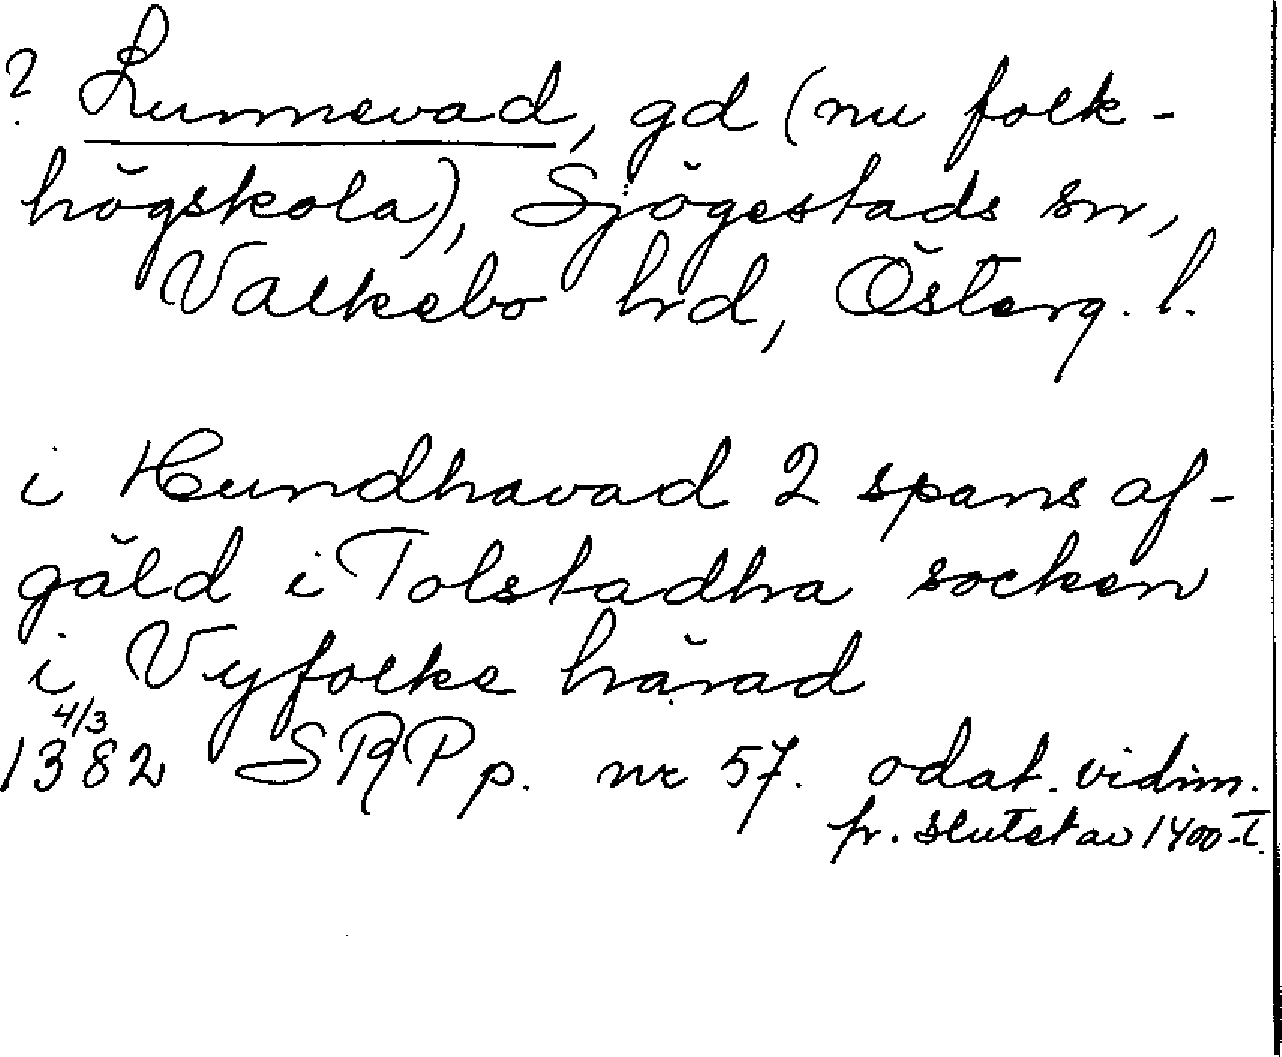 ? Lunnevad, gd (nu folk-
högskola), Sjögestads sn,
Valkebo hrd, Österg. l.
i Hundhavad 2 spans af-
gäld i Tolstadha socken
i Vyfolke härad
4/3
1382 SRPp. nr 57. odat. vidim.
fr. slutet av 1400-t.